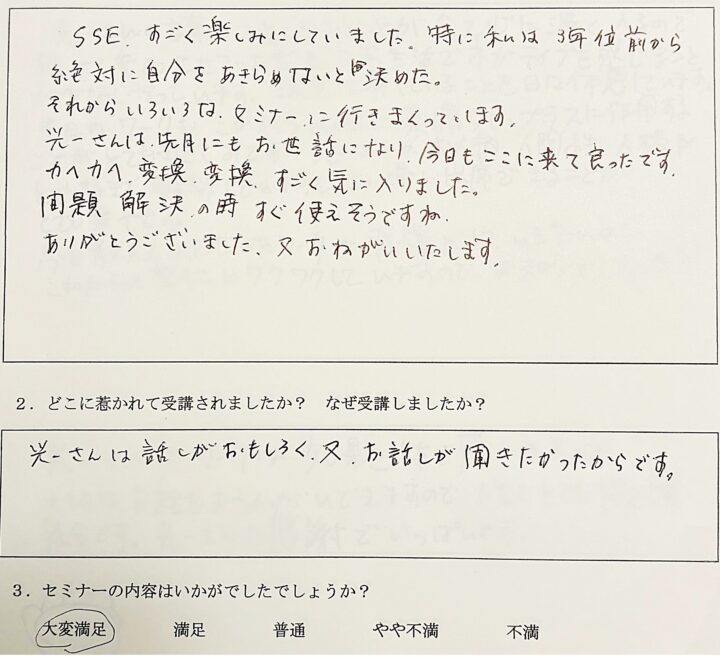 SSE. すごく楽しみにしていました。特に私は3年位前から
絶対に自分をあきらめないと決めた。
それからいろいろな、セミナーに行きまくっています。
光一さんは、先月にもお世話になり、今日もここに来て良ったです。
カヘカヘ、変換、変換、すごく気に入りました。
問題 解決 の時 すぐ使えそうですね。
ありがとうございました、又おねがいいたします。
2．どこに惹かれて受講されましたか？　なぜ受講しましたか？
光一さんは話しがおもしろく、又、お話しが聞きたかったからです。
3．セミナーの内容はいかがでしたでしょうか？
大変満足　満足　普通　やや不満　不満